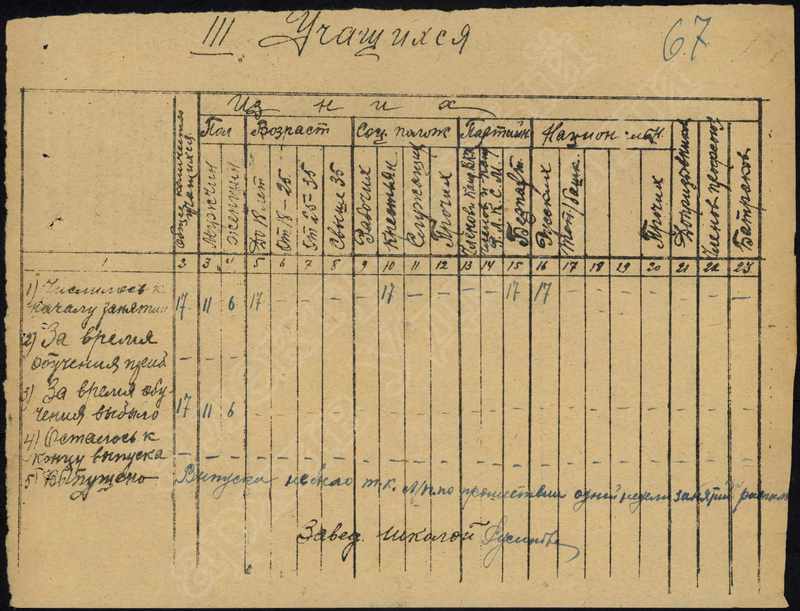 III Учащихся
67
Из них
Пол Возраст Соц. полож Партийн Национ-льн
Общее количество учащихся
Мужчин
Женщин
До 18 лет
От 18-25
От 25-35
Свыше 35
Рабочих
Крестьян
Служащих
Прочих
Безпарт.
Русских
Тат/баш.
Прочих
Допризовников
Членов профсоюз
Батраков
1 2 3 4 5 6 7 8 9 10 11 12 13 14 15 16 17 18 19 20 21 22 23
1) Числилось к
началу занятий 17 11 6 17 - - - - 17 - - - - 17 17 - - - - - - -
2) За время
обучения приб - - - - - - - - - - - - - - - - - - - - - -
3) За время обу-
чения выбыло 17 11 6 - - - - - - - - - - - - - - - - - - -
4) Осталось к
концу выпуска - - - - - - - - - - - - - - - - - - - - - -
5) Выпущено Выпуска не было т.к. по прошествии одной недели занятий
Завед. школой